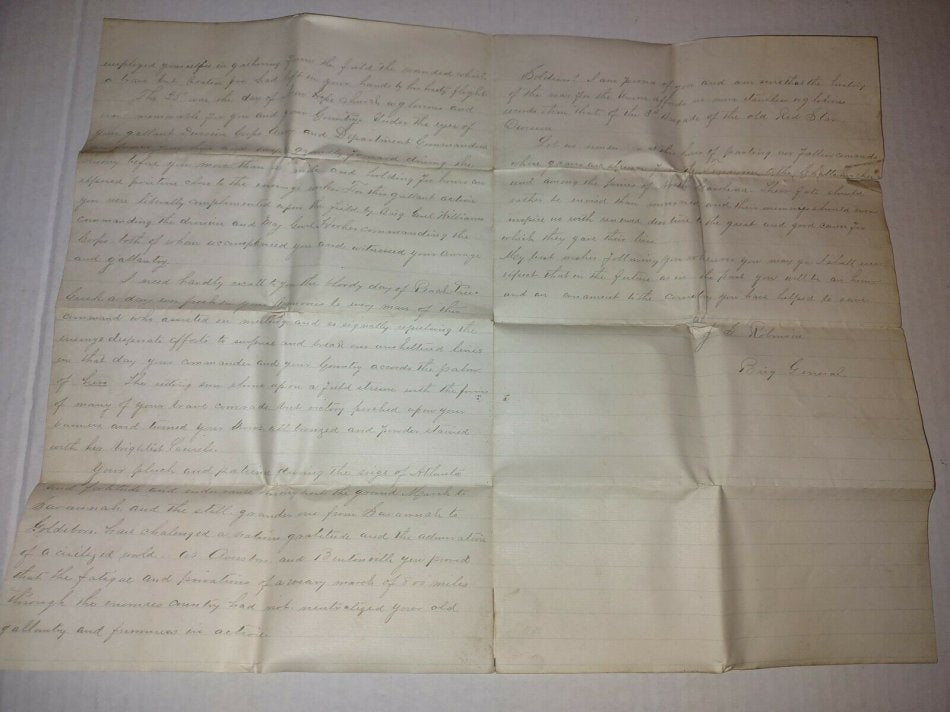 employed yourselves in gathering from the field the wounded which
a brave but foe had left in your hands by his hasty flight
The 25 was the day of New Hope Church a glorious and
memorable for you and your Country. Under the eyes of
your gallant Division Corps Army and Department Commanders
forward driving the
enemy before you more than a mile and holding for hours an
exposed position close to the enemys works. For this gallant action
you were complimented upon the field by Brig Genl Williams
commanding the division and Maj Genl Hooker commanding the
Corps both of whom accompanied you and witnessed your courage
and gallantry
I need hardly recall to you the bloody day of Peach Tree
Creek a day ever fresh in the memories to every man of this
command who assisted in meeting and so equally repulsing the
enemys desperate efforts to surprise and break our unsheltered lines
on that day your commander and your Country accords the palm
of hero The setting sun shone upon a field strewn with the forms
of many of your brave comrads but victory perched upon your
banners and crowned your brows all bronzed and powder stained
with her brightest laurels.
Your pluck and patience during the siege of Atlanta
and fortitude and endurance throughout the grand March to
Savannah and the still grander one from Savannah to
Goldsboro have challenged a nations gratitude and the admiration
of a civilized world. At and Bentonville you proved
that the fatigue and privations of a weary march of 500 miles
through the enemies country had not neutralized your old
gallantry and firmness in action
Soldiers! I am proud of you and am sure that the history
of the war for the Union affords no more glorious
than that of the 3d Brigade of the old Red Star
Division
Let us remember in this hour of parting our fallen comrads
whose graves are
and among the pines of North Carolina. Their fate should
rather be envied than mourned and their memories should ever
inspire us with renewed devotion to the great and good cause for
which they gave their lives
My best wishes following you wherever you may go I shall ever
expect that in the future as in the past you will be an honor
and an ornament to the country you have helped to save
J S Robinson
Brig General